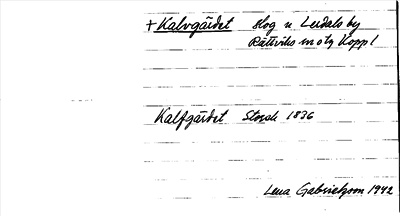 + Kalvgärdet skog n Leidals by
Rättviks sn o tg Koppl
Kalfgärdet Storsk 1836
Lena Gabrielsson 1942